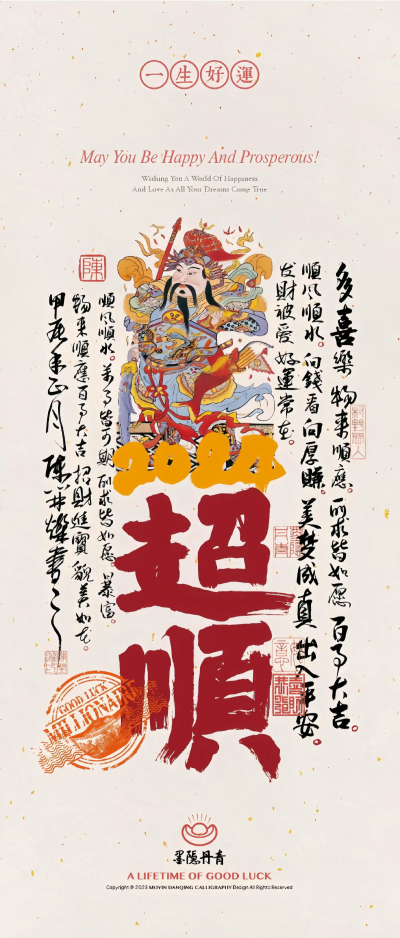 一生好運
May You Be Happy And Prosperous!
Wishing You A World Of Happiness
And Love As All Your Dreams Come True
陳
多喜樂 物来順應。所求皆如愿 百事大吉。
順风順水。向錢看向厚賺。美梦成真 出入平安。
发财被爱 好運常在。
2024
超順
順风順水。萬事皆可期 所求皆如愿 暴富。
物来順應百事大吉 招财進寶 貌美如花。
甲辰年正月
GOOD LUCK
MILLIONAIRE
墨隱丹青
A LIFETIME OF GOOD LUCK
Copyright © 2023 MOYIN DANQING CALLIGRAPHY Design All Rights Reserved